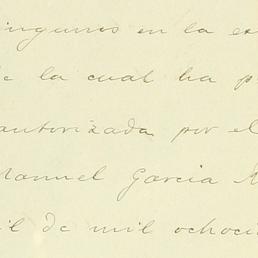 ninguno en la es
de la cual ha p
autorizada por el
Manuel Garcia
il de mil ochoci